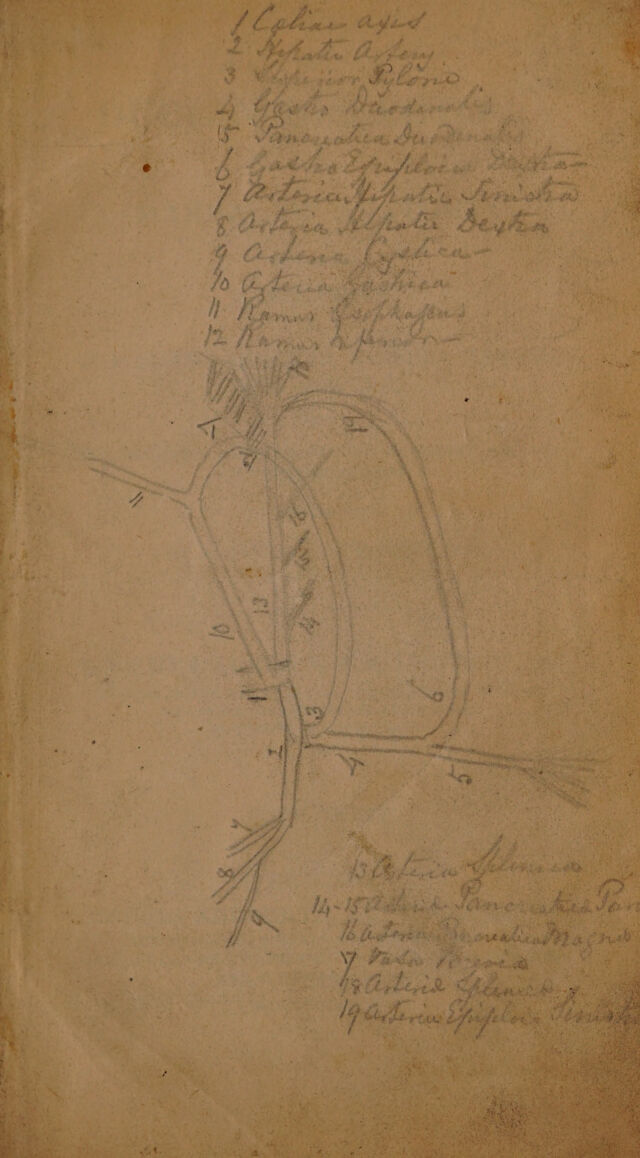 1 Coeliac axis
2 Hepatic Artery
3 Superior Pyloric
4 Gastro Duodenalis
5 Pancreatica Duodenalis
6 Gastro Epiploica Dextra
7 Arteria Hepatic Sinistra
8 Arteria Hepatic Dextra
9 Arteria Cystica
10 Arteria Gastrica
11 Ramus Esophageus
12 Ramus Inferior
19
11
10
13
1
3
2
6
4
5
7
8
9
13 Arteria Splenica
14-15 Arteria Pancreatica Par
16 Arteria Pancreatica Magna
7 Vasa Brevia
18 Arteria Splenica
19 Arteria Epiploic Sinistra